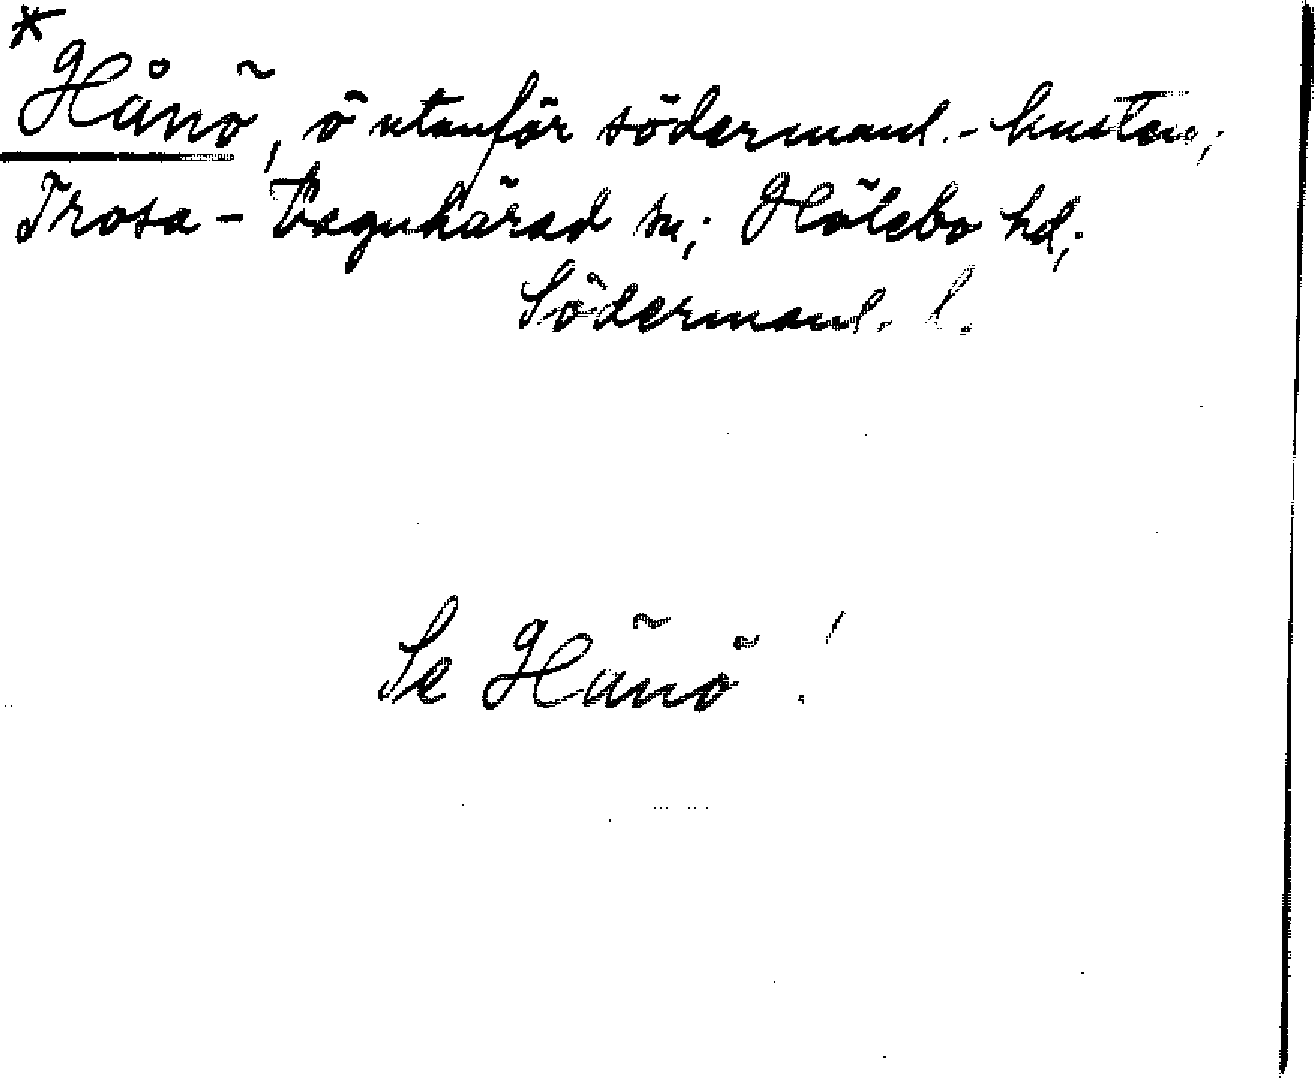 * Hånö, ö utanför södermanl.-kusten;
Trosa-Vagnhärad sn; Hölebo hd;
Södermanl. l.
Se Hänö!